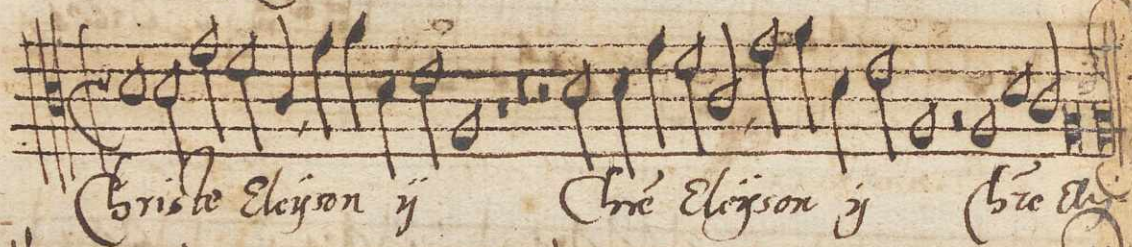 Christe Eleÿson ij Chr̃e Eleÿson ij Chr̃e Ele